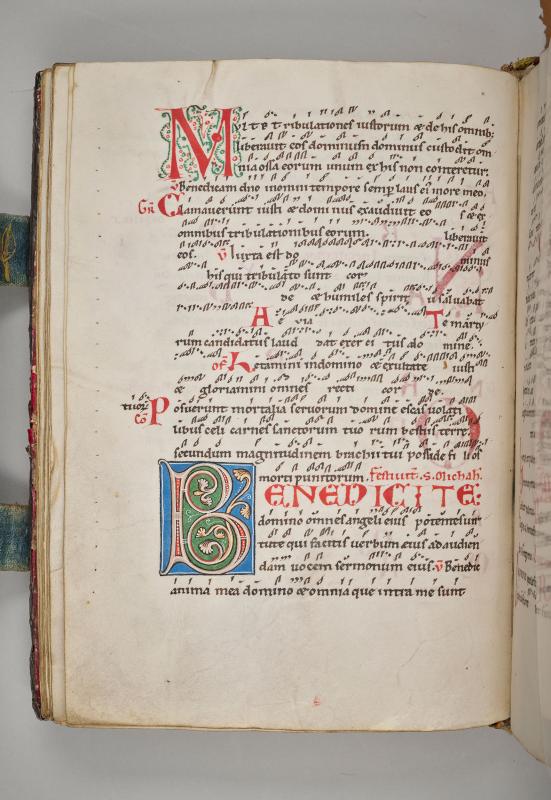 MVLTE tribulationes iustorum & de his omnib;
liberauit eos dominus dominus custodit om
nia ossa eorum unum ex his non conteretur.
V Benedicam dno inomni tempore semp laus ei' inore meo.
Clamauerunt iusti & domi nus exaudiuit eo s & ex
omnibus tribulationibus eorum. liberauit
eos. V Iuxta est do minus
his qui tribulato sunt cor
de & humiles spiritu saluabit
A e uia Te marty
rum candidatus laud dat exer ci tus do mine.
of Letamini indomino & exultate iusti
& gloriamini omnes recti cor de.
tuorum
co Posuerunt mortalia seruorum domine escas uolati
libus celi carnes sanctorum tuo rum bestiis terre
secundum magnitudinem brachii tui posside fi lios
morti punitorum. Festiuit. S. Michah.
BENEDICITE:
domino omnes angeli eius potentes uir
tute qui facitis uerbum eius ad audien
dam uocem sermonum eius. V Benedic
anima mea domino & omnia que intra me sunt